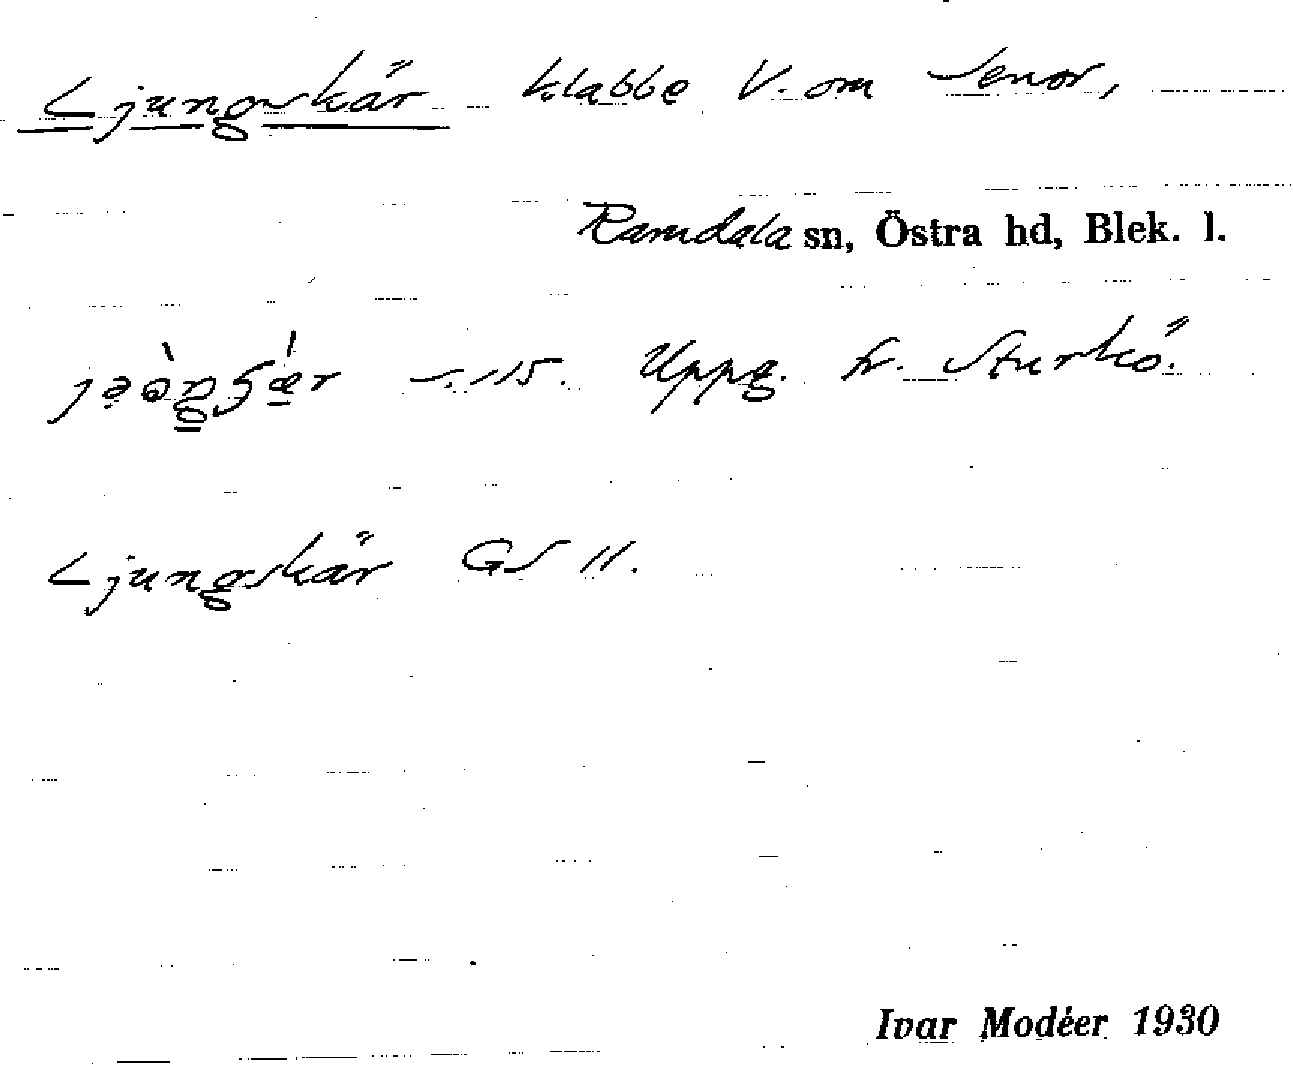 Ljungskär klabbe V. om Senor,
Ramdala sn, Östra hd, Blek. l.
s. 115. Uppg. fr. Sturkö.
Ljungskär GS 11.
Ivar Modéer 1930